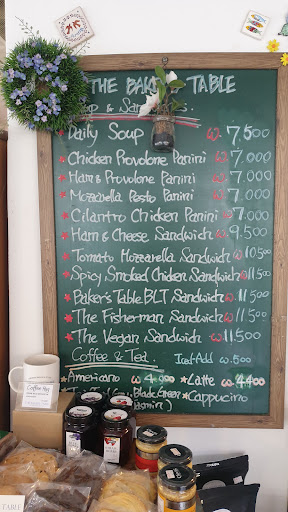 THE BAKER TABLE
Soup & Sandwiches.
Daily Soup ₩ 7,500
Chicken Provolone Panini ₩ 7,000
Ham & Provolone Panini ₩ 7,000
Mozzarella Pesto Panini ₩ 7,000
Cilantro Chicken Panini ₩ 7,000
Ham & Cheese Sandwich ₩ 9,500
Tomato Mozzarella Sandwich ₩ 10,500
Spicy Smoked Chicken Sandwich ₩ 11,500
Baker's Table BLT Sandwich ₩ 11,500
The Fisherman Sandwich ₩ 11,500
The Vegan Sandwich ₩ 11,500
Coffee & Tea. Iced-Add ₩ .500
Americano ₩ 4,000 Latte ₩ 4,400
Black, Green Cappucino
Jasmin)
Coffee Mug